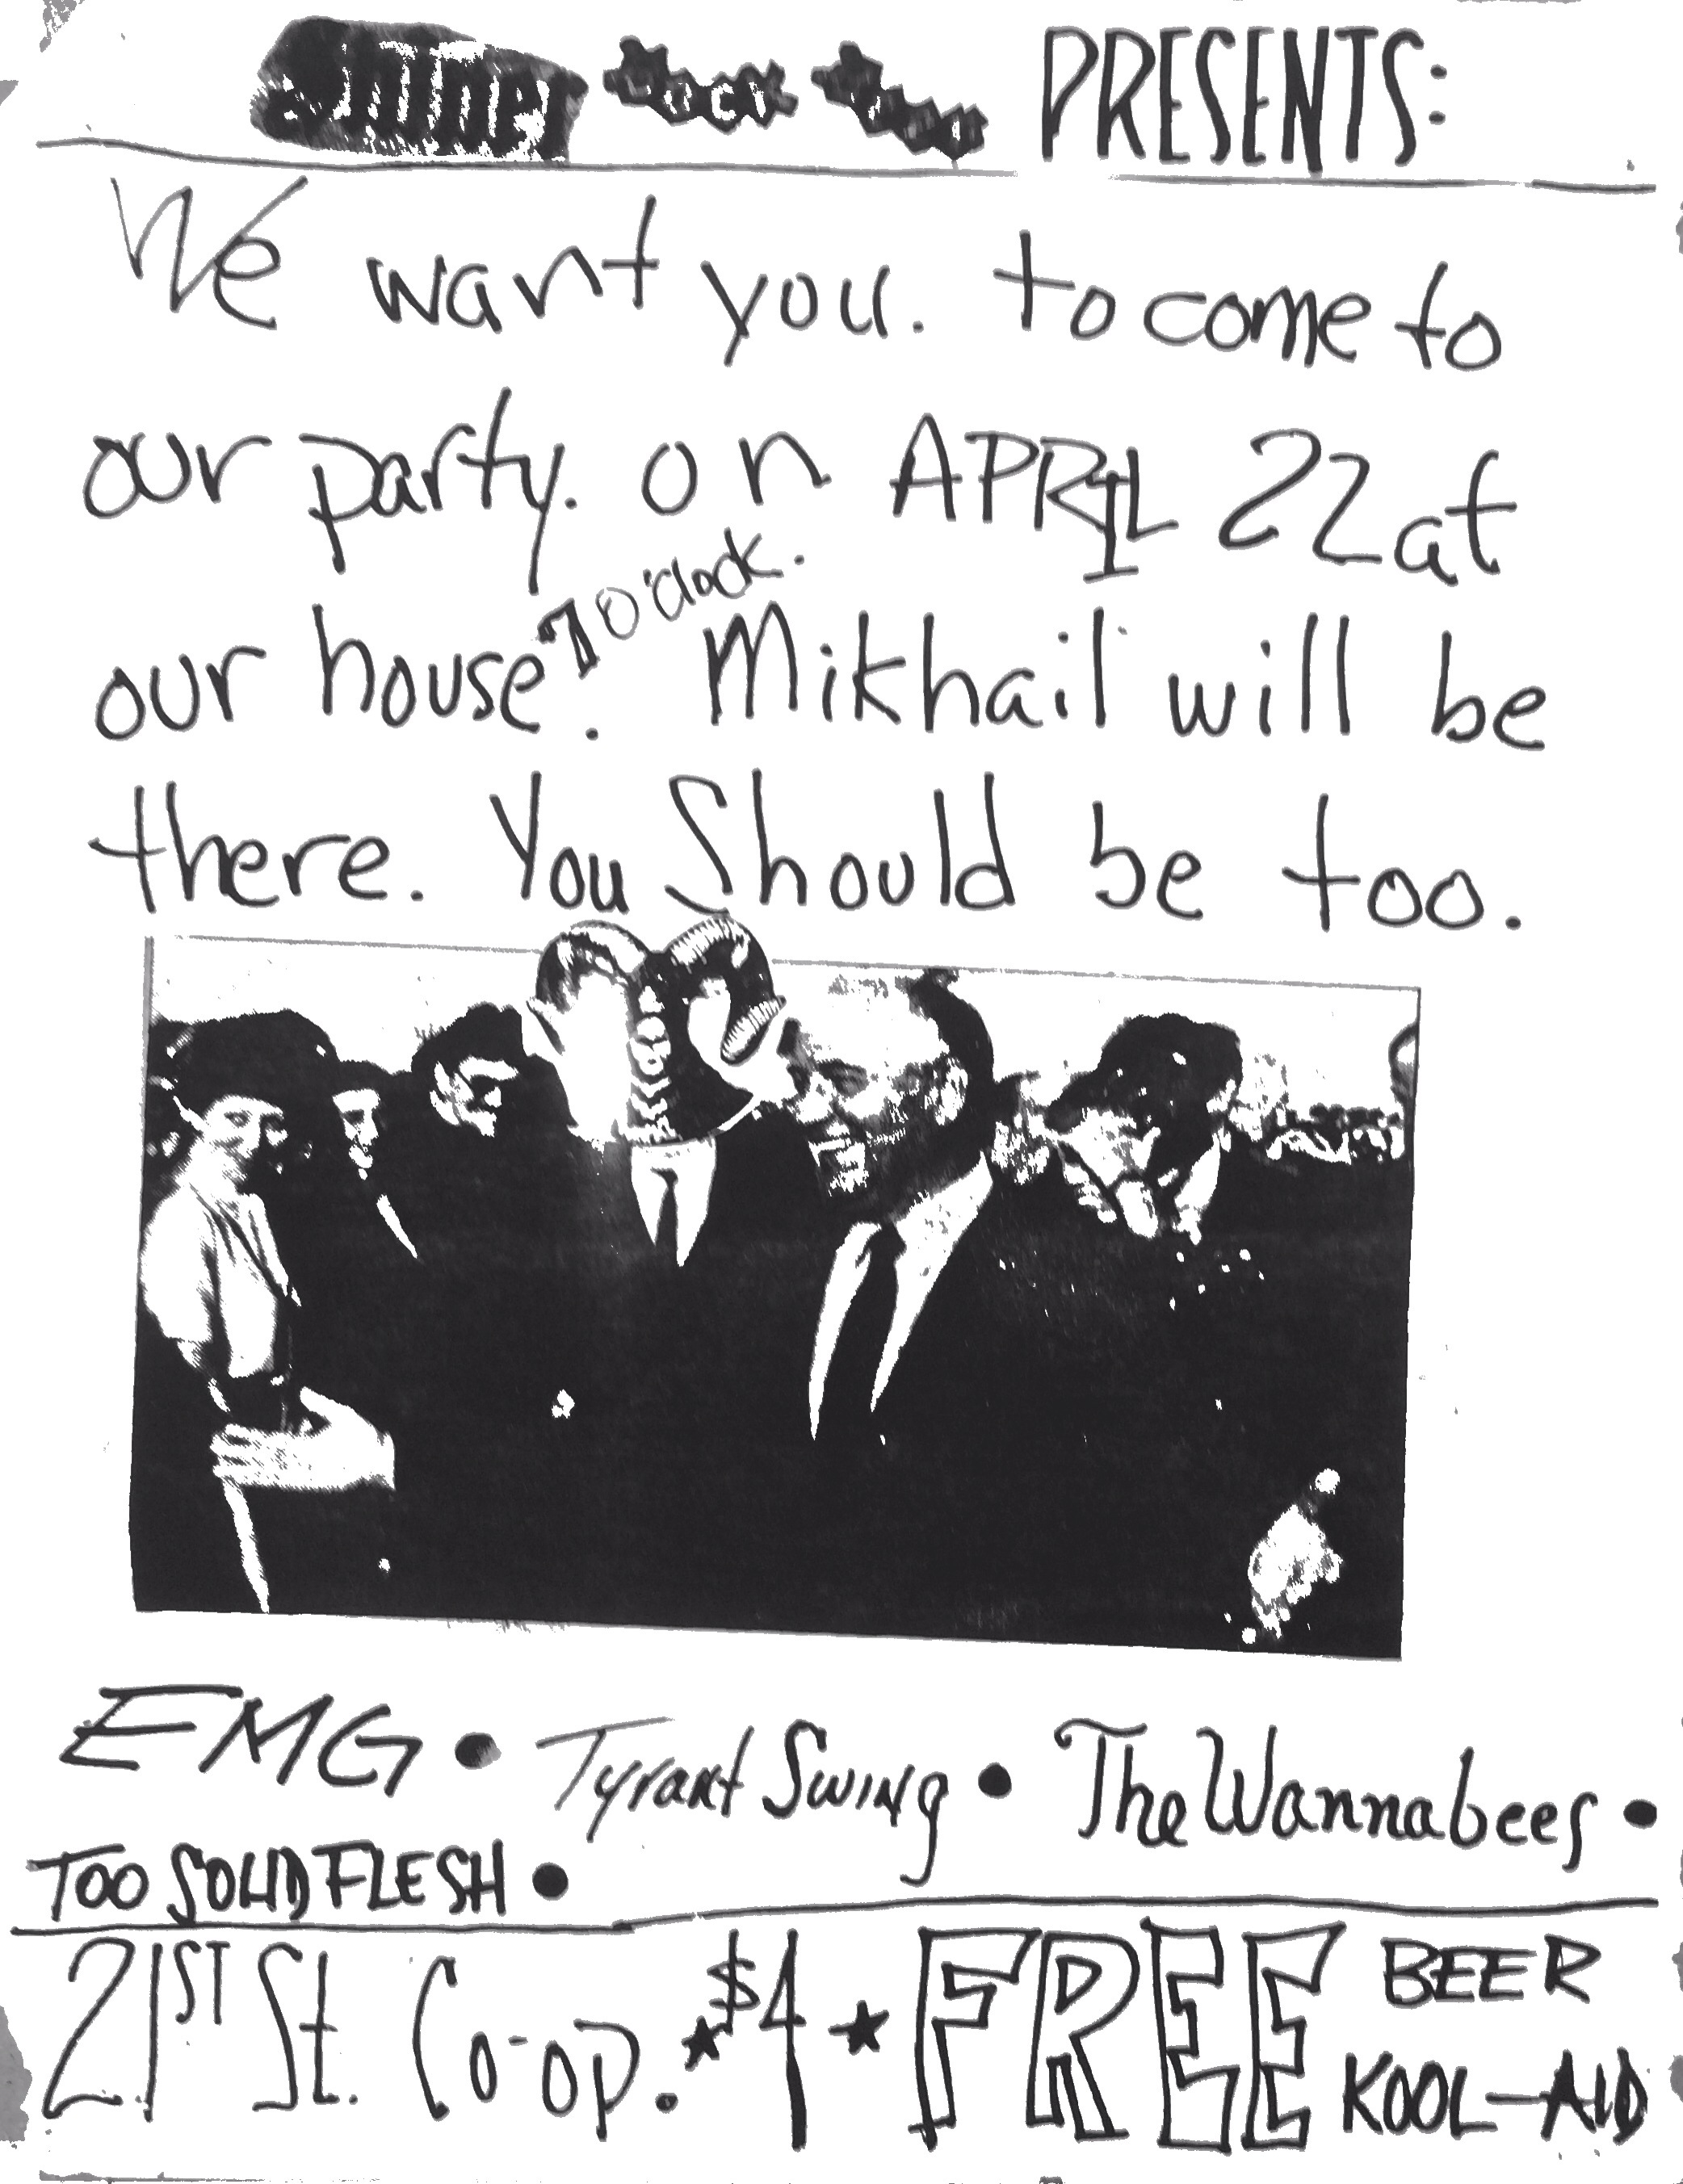 Shiner Bock PRESENTS:
We want you. to come to
our party. on APRIL 22 at
7 O'clock.
our house. Mikhail will be
there. You Should be too.
EMG • Tyrant Swing • The Wannabees •
TOO SOLID FLESH •
21ST St. Co-op. ★ $4 ★ FREE BEER
KOOL-AID